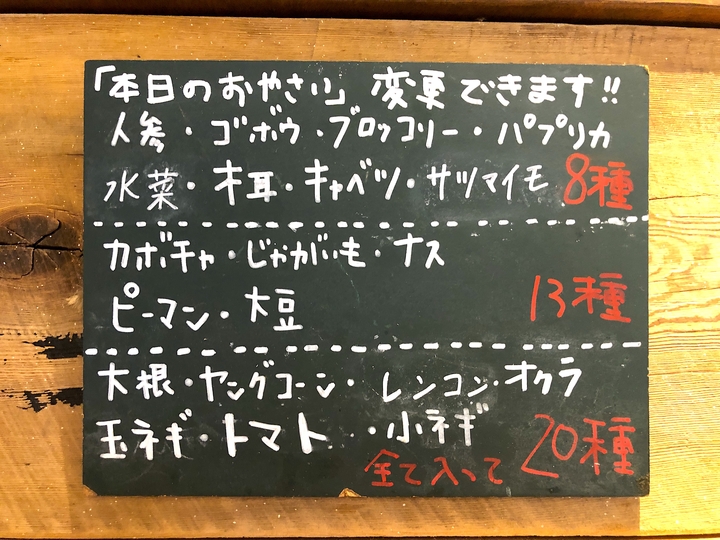 「本日のおやさい」変更できます!!
人参・ゴボウ・ブロッコリー・パプリカ
水菜・木耳・キャベツ・サツマイモ 8種
カボチャ・じゃがいも・ナス
ピーマン・大豆 13種
大根・ヤングコーン・レンコン・オクラ
玉ネギ・トマト・小ネギ
全て入って 20種